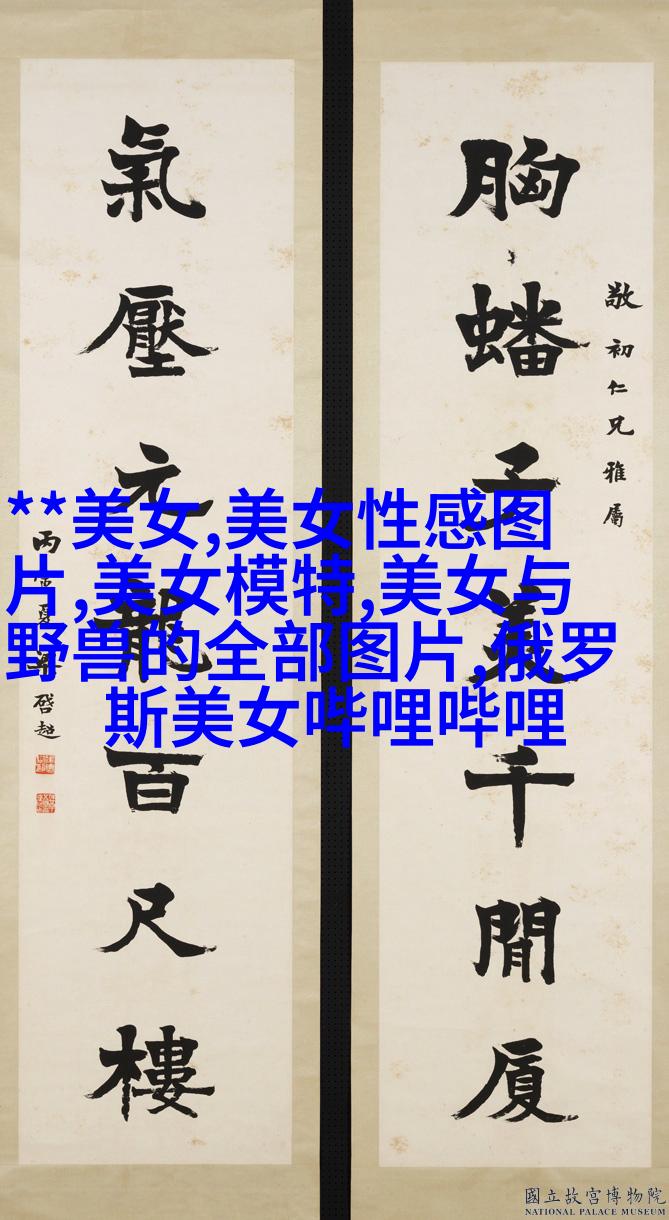 胸蟠子美千間廈
敬初仁兄雅屬
氣壓元龍百尺樓
丙寅夏 啓超
**美女,美女性感图
片,美女模特,美女与
野兽的全部图片,俄罗
斯美女哔哩哔哩
國立故宮博物院
NATIONAL PALACE MUSEUM